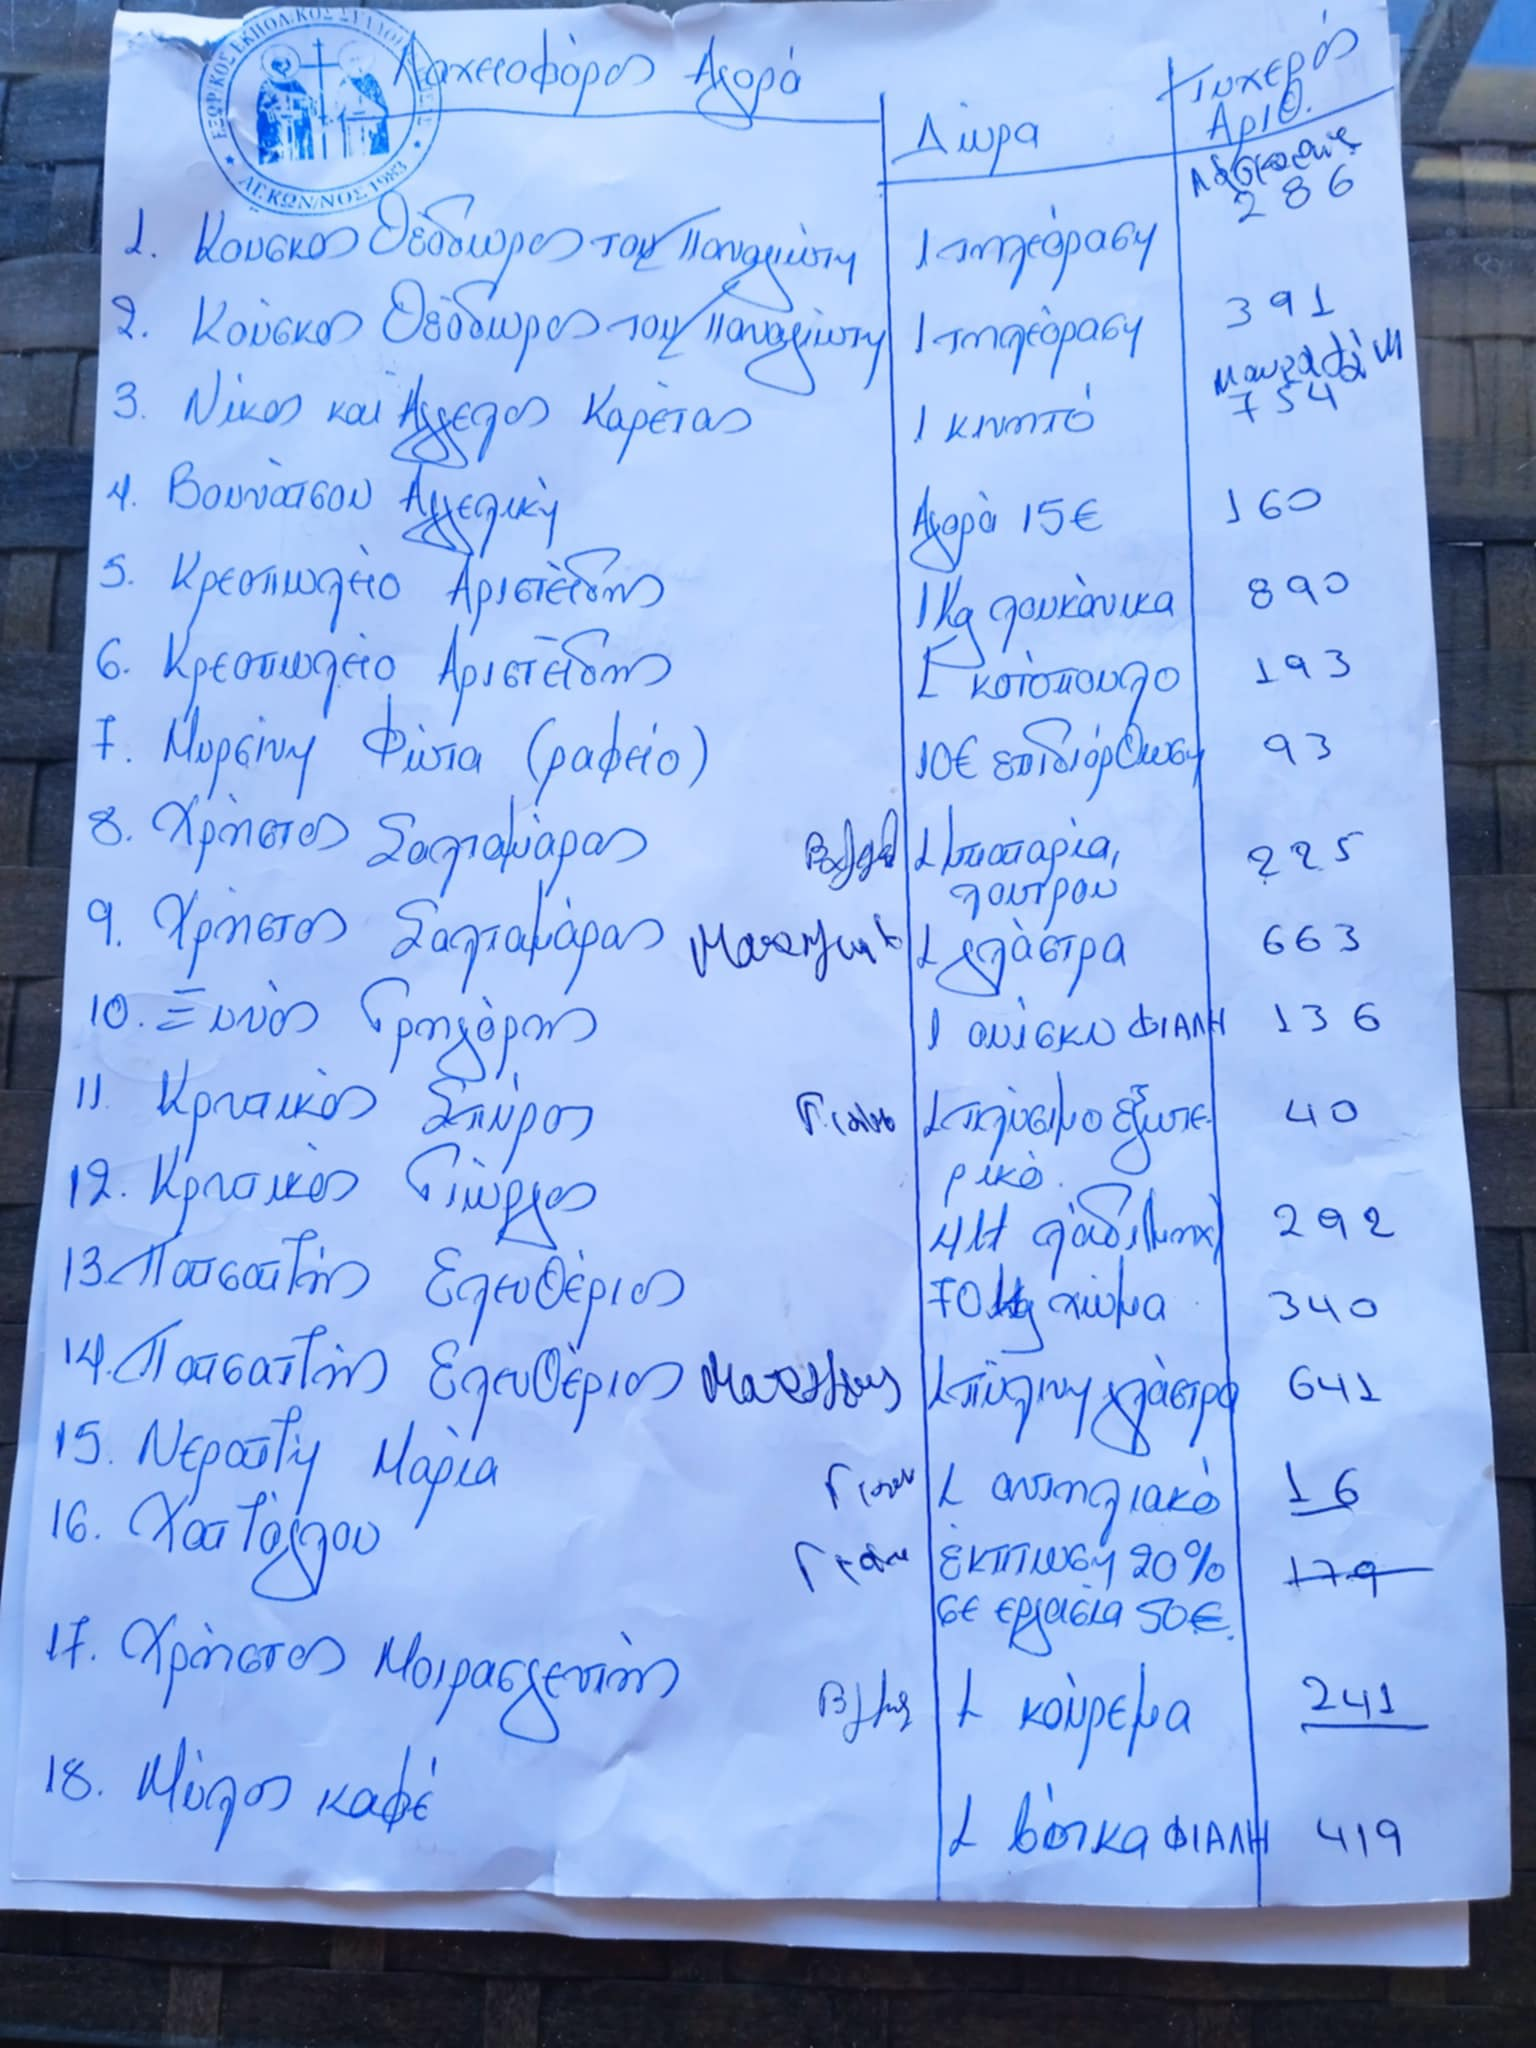 ΕΞΩΡ/ΚΟΣ ΕΚΠΟΛ/ΚΟΣ ΣΥΛΛΟΓΟΣ
ΑΓ.ΚΩΝ/ΝΟΣ 1983
Λαχειοφόρος Αγορά
Δώρα
Τυχερός Αριθ.
1. Κούσκος Θεόδωρος του Παναγιώτη 1 τηλεόραση 286
2. Κούσκος Θεόδωρος του Παναγιώτη 1 τηλεόραση 391
3. Νίκος και Άγγελος Καρέτας 1 κινητό 754
4. Βουνάτσου Αγγελική Αγορά 15€ 160
5. Κρεοπωλείο Αριστείδης 1 Kg λουκάνικα 890
6. Κρεοπωλείο Αριστείδης 1 κοτόπουλο 193
7. Μυρσίνη Φώτια (ραφείο) 10€ επιδιόρθωση 93
8. Χρήστος Σαλταμάρας 1 μπαταρία, 225
λουτρού
9. Χρήστος Σαλταμάρας 1 γλάστρα 663
10. Ξυνός Γρηγόρης 1 ουίσκυ ΦΙΑΛΗ 136
11. Κρητικός Σπύρος 1 πλύσιμο εξωτε- 40
ρικό.
12. Κρητικός Γιώργος 4 lt λάδι 292
13. Πατσατζής Ελευθέριος 70 Kg χώμα 340
14. Πατσατζής Ελευθέριος 1 πύλινη γλάστρα 641
15. Νεραντζή Μαρία 1 αντηλιακό 16
16. Χατζόγλου έκπτωση 20% 179
σε εργασία 50€.
17. Χρήστος Μοιρασγεντής 1 κούρεμα 241
18. Μύλος καφέ 1 βότκα ΦΙΑΛΗ 419